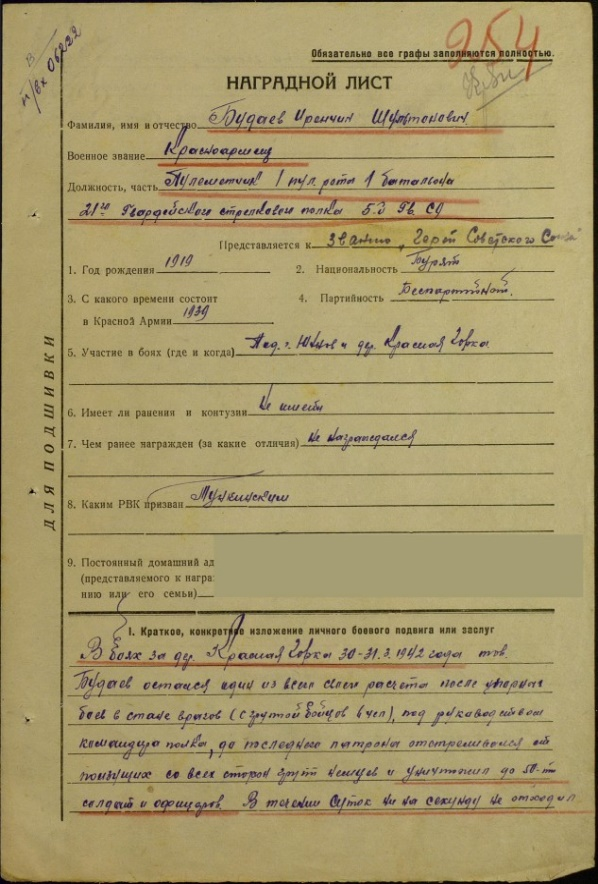 В
п/вх 06222
254
Обязательно все графы заполняются полностью.
НАГРАДНОЙ ЛИСТ
Фамилия, имя и отчество Будаев Иренчин Шультонович
Военное звание Красноармеец
Должность, часть Пулеметчик 1 пул. роты 1 батальона
21го Гвардейского стрелкового полка 5-й Гв. СД
Представляется к званию „Герой Советского Союза"
1. Год рождения 1919 2. Национальность Бурят
3. С какого времени состоит
в Красной Армии 1939 4. Партийность Беспартийный.
5. Участие в боях (где и когда) Под г. Юхнов и дер. Красная Горка
6. Имеет ли ранения и контузии Не имеет
7. Чем ранее награжден (за какие отличия) Не награждался
8. Каким РВК призван Тункинским
9. Постоянный домашний ад
(представляемого к награ
нию или его семьи)
ДЛЯ ПОДШИВКИ
I. Краткое, конкретное изложение личного боевого подвига или заслуг
В боях за дер. Красная Горка 30-31.3.1942 года тов.
Будаев остался один из всего своего расчета после упорных
боев в стане врагов (с группой бойцов 6 чел), под руководством
командира полка, до последнего патрона отстреливался от
ползущих со всех сторон групп немцев и уничтожил до 50-ти
солдат и офицеров. В течении суток ни на секунду не отходил